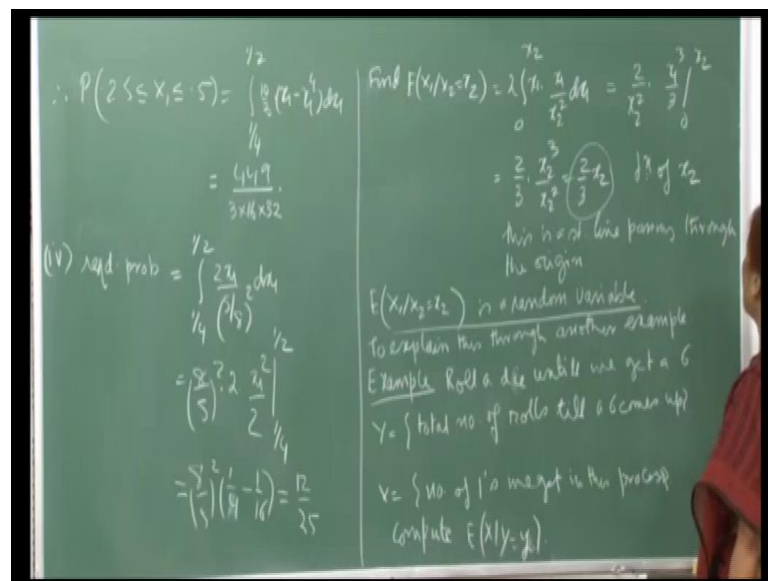 ∴ P(25 ≤ X₁ ≤ .5) = ∫_{1/4}^{1/2} 10/3 (x₁ - x₁⁴) dx₁
= 449 / 3×16×32 .
(iv) reqd. prob = ∫_{1/4}^{1/2} 2x₁ / (5/8)² dx₁
= (8/5)² · 2 x₁²/2 |_{1/4}^{1/2}
= (8/5)² (1/4 - 1/16) = 12/25
Find E(X₁/X₂=x₂) = 2 ∫_0^{x₂} x₁ · x₁/x₂² dx₁ = 2/x₂² · x₁³/3 |_0^{x₂}
= 2/3 · x₂³/x₂² = 2/3 x₂ fⁿ of x₂
this is a st line passing through
the origin
E(X₁/X₂=x₂) is a random variable.
To explain this through another example
Example Roll a die until we get a 6
Y = { total no. of rolls till a 6 comes up}
X = { no. of 1's we get in this process
compute E(X|Y=y).